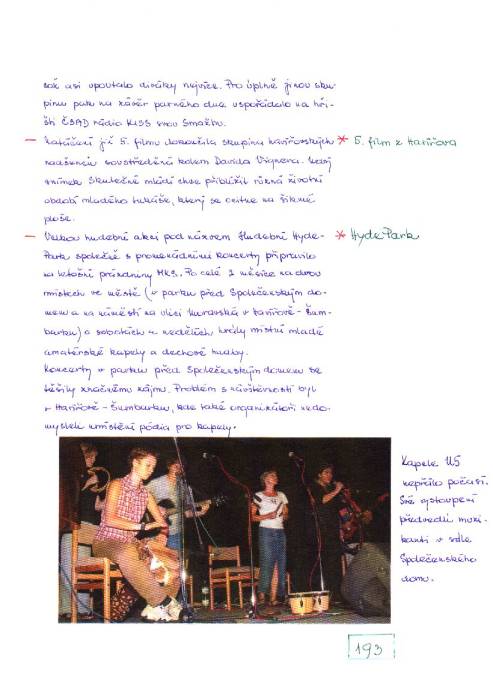 zák asi upoutalo diváky nejvíce. Pro úplně jinou sku-
pinu pak na závěr parného dne uspořádalo na hři-
šti ČSAD rádio KISS svou Smažbu.
— Natáčení již 5. filmu dokončila skupina havířovských * 5. film z Havířova
nadšenců soustředěná kolem Davida Vignera. Nový
snímek Skutečné mládí chce přiblížit různá životní
období mladého Lukáše, který se ocitne na šikmé
ploše.
— Velkou hudební akci pod názvem Hudební Hyde- * Hyde Park
Park společně s promenádními koncerty připravilo
na letošní prázdniny MKS. Po celé 2 měsíce na dvou
místech ve městě (v parku před Společenským do-
mem a na náměstí na ulici Moravská v Havířově - Šum-
barku) o sobotách a nedělích hrály místní mladé
amatérské kapely a dechové hudby.
Koncerty v parku před Společenským domem se
těšily značnému zájmu. Problém s návštěvností byl
v Havířově - Šumbarku, kde také organizátoři nedo-
mysleli umístění pódia pro kapely.
Kapele U5
nepřálo počasí.
Své vystoupení
předvedli muzi-
kanti v sále
Společenského
domu.
193